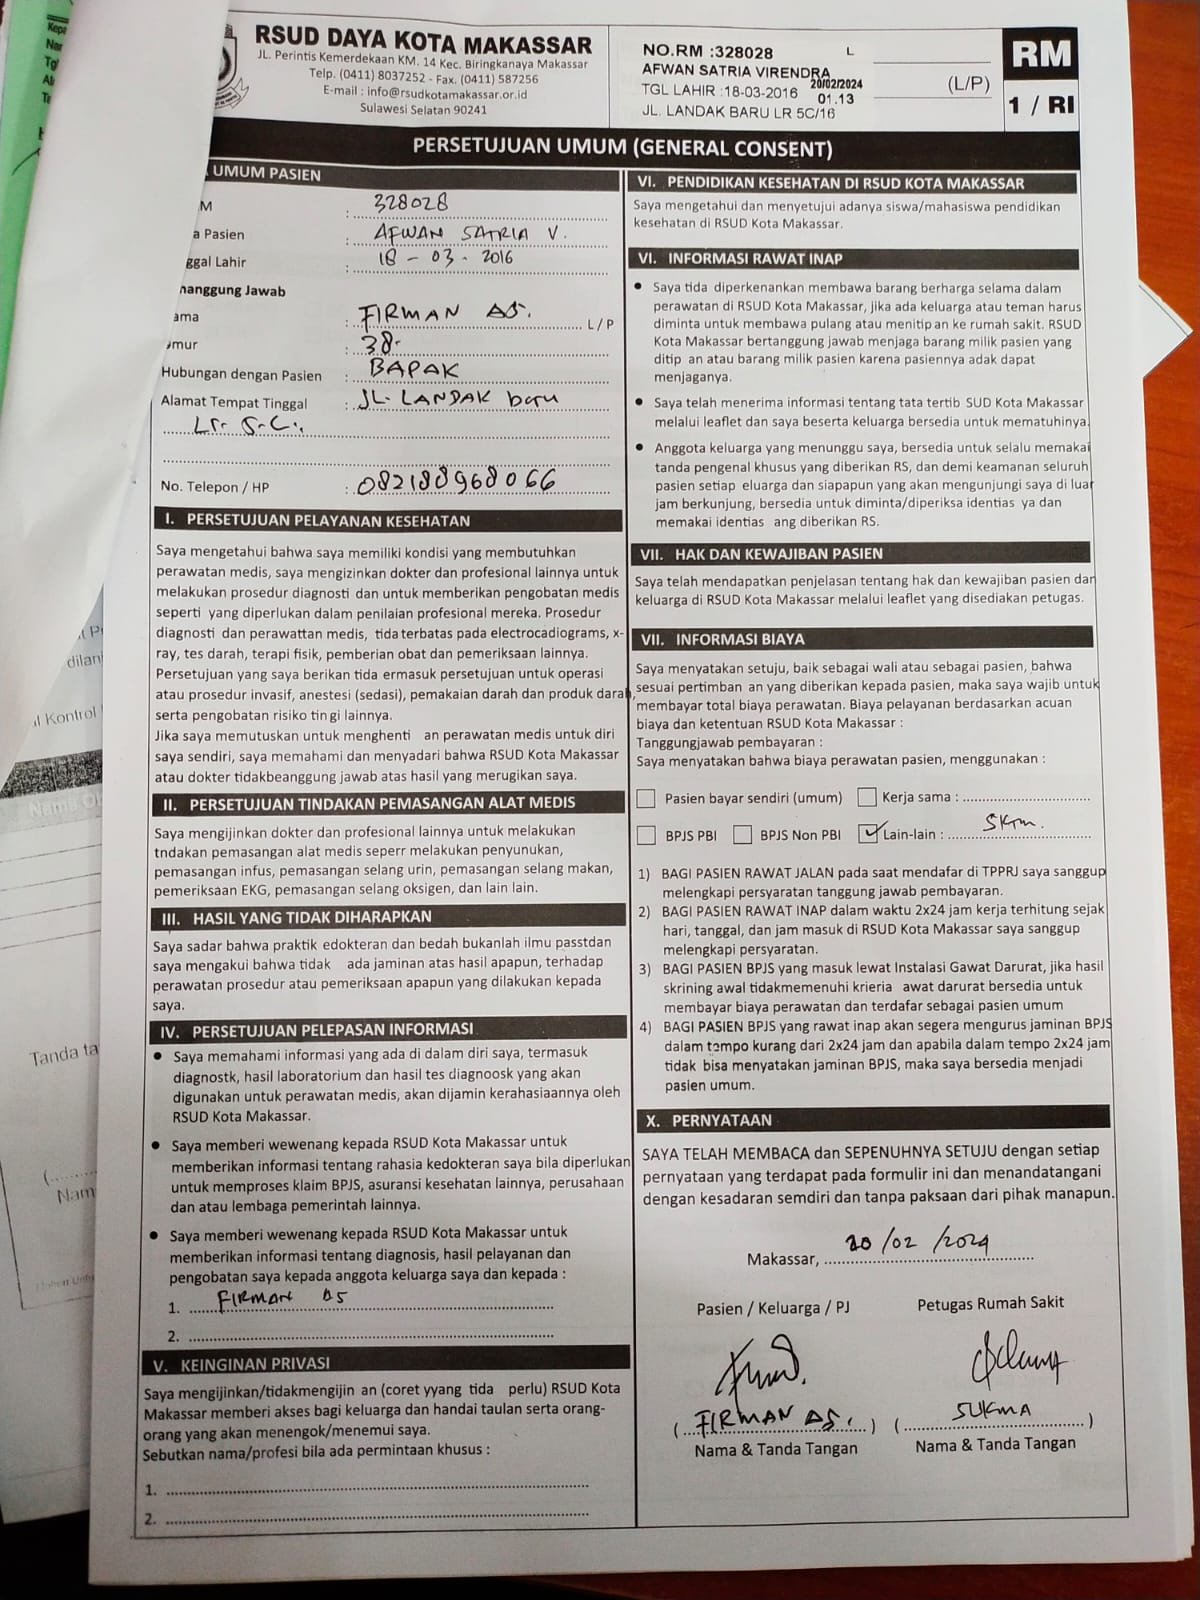 RSUD DAYA KOTA MAKASSAR
JL. Perintis Kemerdekaan KM. 14 Kec. Biringkanaya Makassar
Telp. (0411) 8037252 - Fax. (0411) 587256
E-mail : info@rsudkotamakassar.or.id
Sulawesi Selatan 90241
NO.RM :328028 L
AFWAN SATRIA VIRENDRA
TGL LAHIR :18-03-2016 20/02/2024
01.13
JL. LANDAK BARU LR 5C/16
(L/P)
RM
1 / RI
PERSETUJUAN UMUM (GENERAL CONSENT)
UMUM PASIEN
M : 328028
a Pasien : AFWAN SATRIA V.
ggal Lahir : 18 - 03 - 2016
nanggung Jawab
ama : FIRMAN AS. L/P
mur : 38.
Hubungan dengan Pasien : BAPAK
Alamat Tempat Tinggal : JL. LANDAK baru
Lr. 5.C..
No. Telepon / HP : 082188968066
I. PERSETUJUAN PELAYANAN KESEHATAN
Saya mengetahui bahwa saya memiliki kondisi yang membutuhkan
perawatan medis, saya mengizinkan dokter dan profesional lainnya untuk
melakukan prosedur diagnosti dan untuk memberikan pengobatan medis
seperti yang diperlukan dalam penilaian profesional mereka. Prosedur
diagnosti dan perawattan medis, tida terbatas pada electrocadiograms, x-
ray, tes darah, terapi fisik, pemberian obat dan pemeriksaan lainnya.
Persetujuan yang saya berikan tida ermasuk persetujuan untuk operasi
atau prosedur invasif, anestesi (sedasi), pemakaian darah dan produk darah,
serta pengobatan risiko tingi lainnya.
Jika saya memutuskan untuk menghenti an perawatan medis untuk diri
saya sendiri, saya memahami dan menyadari bahwa RSUD Kota Makassar
atau dokter tidakbeanggung jawab atas hasil yang merugikan saya.
II. PERSETUJUAN TINDAKAN PEMASANGAN ALAT MEDIS
Saya mengijinkan dokter dan profesional lainnya untuk melakukan
tndakan pemasangan alat medis seperr melakukan penyunukan,
pemasangan infus, pemasangan selang urin, pemasangan selang makan,
pemeriksaan EKG, pemasangan selang oksigen, dan lain lain.
III. HASIL YANG TIDAK DIHARAPKAN
Saya sadar bahwa praktik edokteran dan bedah bukanlah ilmu passtdan
saya mengakui bahwa tidak ada jaminan atas hasil apapun, terhadap
perawatan prosedur atau pemeriksaan apapun yang dilakukan kepada
saya.
IV. PERSETUJUAN PELEPASAN INFORMASI
• Saya memahami informasi yang ada di dalam diri saya, termasuk
diagnostk, hasil laboratorium dan hasil tes diagnoosk yang akan
digunakan untuk perawatan medis, akan dijamin kerahasiaannya oleh
RSUD Kota Makassar.
• Saya memberi wewenang kepada RSUD Kota Makassar untuk
memberikan informasi tentang rahasia kedokteran saya bila diperlukan
untuk memproses klaim BPJS, asuransi kesehatan lainnya, perusahaan
dan atau lembaga pemerintah lainnya.
• Saya memberi wewenang kepada RSUD Kota Makassar untuk
memberikan informasi tentang diagnosis, hasil pelayanan dan
pengobatan saya kepada anggota keluarga saya dan kepada :
1. FIRMAN AS
2.
V. KEINGINAN PRIVASI
Saya mengijinkan/tidakmengijin an (coret yyang tida perlu) RSUD Kota
Makassar memberi akses bagi keluarga dan handai taulan serta orang-
orang yang akan menengok/menemui saya.
Sebutkan nama/profesi bila ada permintaan khusus :
1.
2.
VI. PENDIDIKAN KESEHATAN DI RSUD KOTA MAKASSAR
Saya mengetahui dan menyetujui adanya siswa/mahasiswa pendidikan
kesehatan di RSUD Kota Makassar.
VI. INFORMASI RAWAT INAP
• Saya tida diperkenankan membawa barang berharga selama dalam
perawatan di RSUD Kota Makassar, jika ada keluarga atau teman harus
diminta untuk membawa pulang atau menitip an ke rumah sakit. RSUD
Kota Makassar bertanggung jawab menjaga barang milik pasien yang
ditip an atau barang milik pasien karena pasiennya adak dapat
menjaganya.
• Saya telah menerima informasi tentang tata tertib SUD Kota Makassar
melalui leaflet dan saya beserta keluarga bersedia untuk mematuhinya.
• Anggota keluarga yang menunggu saya, bersedia untuk selalu memakai
tanda pengenal khusus yang diberikan RS, dan demi keamanan seluruh
pasien setiap eluarga dan siapapun yang akan mengunjungi saya di luar
jam berkunjung, bersedia untuk diminta/diperiksa identias ya dan
memakai identias ang diberikan RS.
VII. HAK DAN KEWAJIBAN PASIEN
Saya telah mendapatkan penjelasan tentang hak dan kewajiban pasien dan
keluarga di RSUD Kota Makassar melalui leaflet yang disediakan petugas.
VII. INFORMASI BIAYA
Saya menyatakan setuju, baik sebagai wali atau sebagai pasien, bahwa
sesuai pertimban an yang diberikan kepada pasien, maka saya wajib untuk
membayar total biaya perawatan. Biaya pelayanan berdasarkan acuan
biaya dan ketentuan RSUD Kota Makassar :
Tanggungjawab pembayaran :
Saya menyatakan bahwa biaya perawatan pasien, menggunakan :
Pasien bayar sendiri (umum) Kerja sama :
BPJS PBI BPJS Non PBI ✓ Lain-lain : SKTM.
1) BAGI PASIEN RAWAT JALAN pada saat mendafar di TPPRJ saya sanggup
melengkapi persyaratan tanggung jawab pembayaran.
2) BAGI PASIEN RAWAT INAP dalam waktu 2x24 jam kerja terhitung sejak
hari, tanggal, dan jam masuk di RSUD Kota Makassar saya sanggup
melengkapi persyaratan.
3) BAGI PASIEN BPJS yang masuk lewat Instalasi Gawat Darurat, jika hasil
skrining awal tidakmemenuhi krieria awat darurat bersedia untuk
membayar biaya perawatan dan terdafar sebagai pasien umum
4) BAGI PASIEN BPJS yang rawat inap akan segera mengurus jaminan BPJS
dalam tempo kurang dari 2x24 jam dan apabila dalam tempo 2x24 jam
tidak bisa menyatakan jaminan BPJS, maka saya bersedia menjadi
pasien umum.
X. PERNYATAAN
SAYA TELAH MEMBACA dan SEPENUHNYA SETUJU dengan setiap
pernyataan yang terdapat pada formulir ini dan menandatangani
dengan kesadaran semdiri dan tanpa paksaan dari pihak manapun.
Makassar, 20/02/2024
Pasien / Keluarga / PJ Petugas Rumah Sakit
( FIRMAN AS. ) ( SUKMA )
Nama & Tanda Tangan Nama & Tanda Tangan
dilan
Kontrol
Tanda ta
Nam